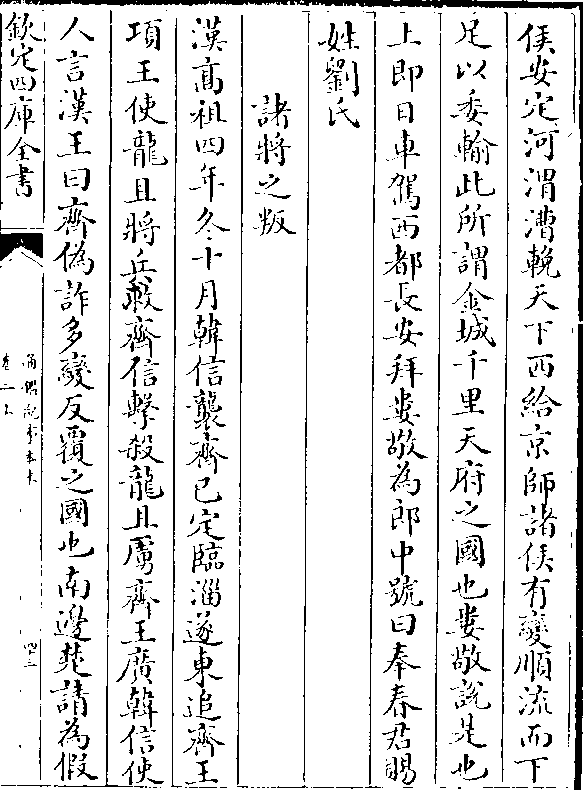 侯安定河渭漕輓天下西給京師諸侯有變順流而下
足以委輸此所謂金城千里天府之國也婁敬說是也
上即日車駕西都長安拜婁敬為郎中號曰奉春君賜
姓劉氏
諸將之叛
漢高祖四年冬十月韓信襲齊已定臨淄遂東追齊王
項王使龍且將兵救齊信擊殺龍且虜齊王廣韓信使
人言漢王曰齊偽詐多變反覆之國也南邊楚請為假
欽定四庫全書
通鑑紀事本末
卷二上
四三